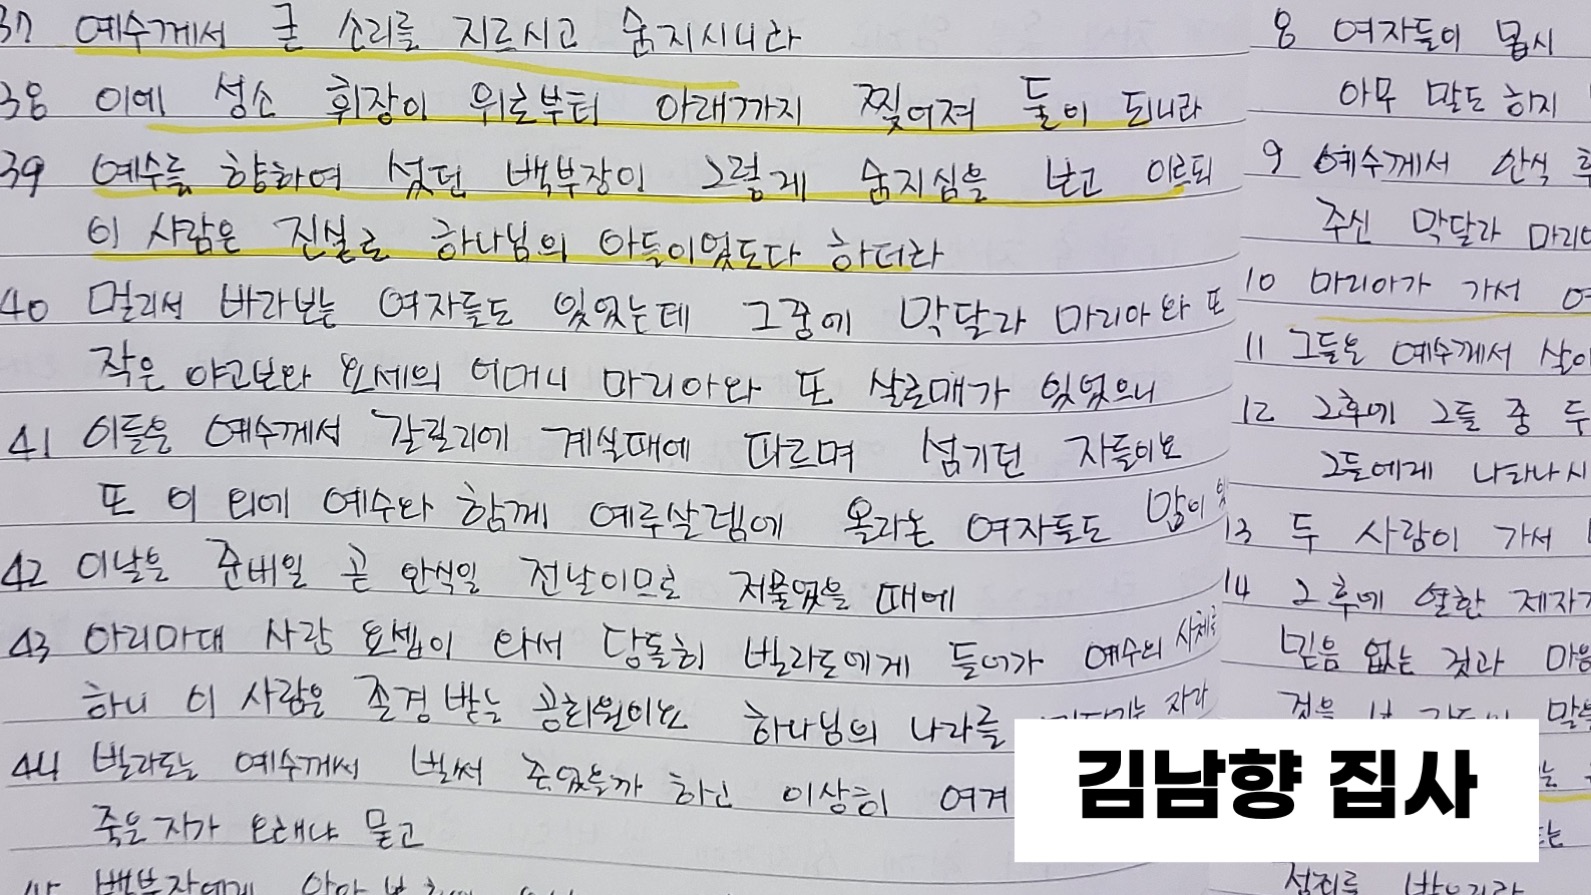 37 예수께서 큰 소리를 지르시고 숨지시니라
38 이에 성소 휘장이 위로부터 아래까지 찢어져 둘이 되니라
39 예수를 향하여 섰던 백부장이 그렇게 숨지심을 보고 이르되
이 사람은 진실로 하나님의 아들이었도다 하더라
40 멀리서 바라보는 여자들도 있었는데 그중에 막달라 마리아와 또
작은 야고보와 요세의 어머니 마리아와 또 살로매가 있었으니
41 이들은 예수께서 갈릴리에 계실때에 따르며 섬기던 자들이요
또 이 외에 예수와 함께 예루살렘에 올라온 여자들도 많이
42 이날은 준비일 곧 안식일 전날이므로 저물었을 때에
43 아리마대 사람 요셉이 와서 당돌히 빌라도에게 들어가 예수의 사체를
하니 이 사람은 존경 받는 공회원이요 하나님의 나라를 자라
44 빌라도는 예수께서 벌써 죽었을까 하고 이상히 여겨
죽은 자가 오래냐 묻고
백부장에게
8 여자들이 몹시
아무 말도 하지
9 예수께서 안식 후
주신 막달라
10 마리아가 가서
11 그들은 예수께서
12 그후에 그들 중 두
그들에게 나타나시
13 두 사람이 가서
14 그 후에 열한 제자가
믿음 없는 것과
것을
김남향 집사